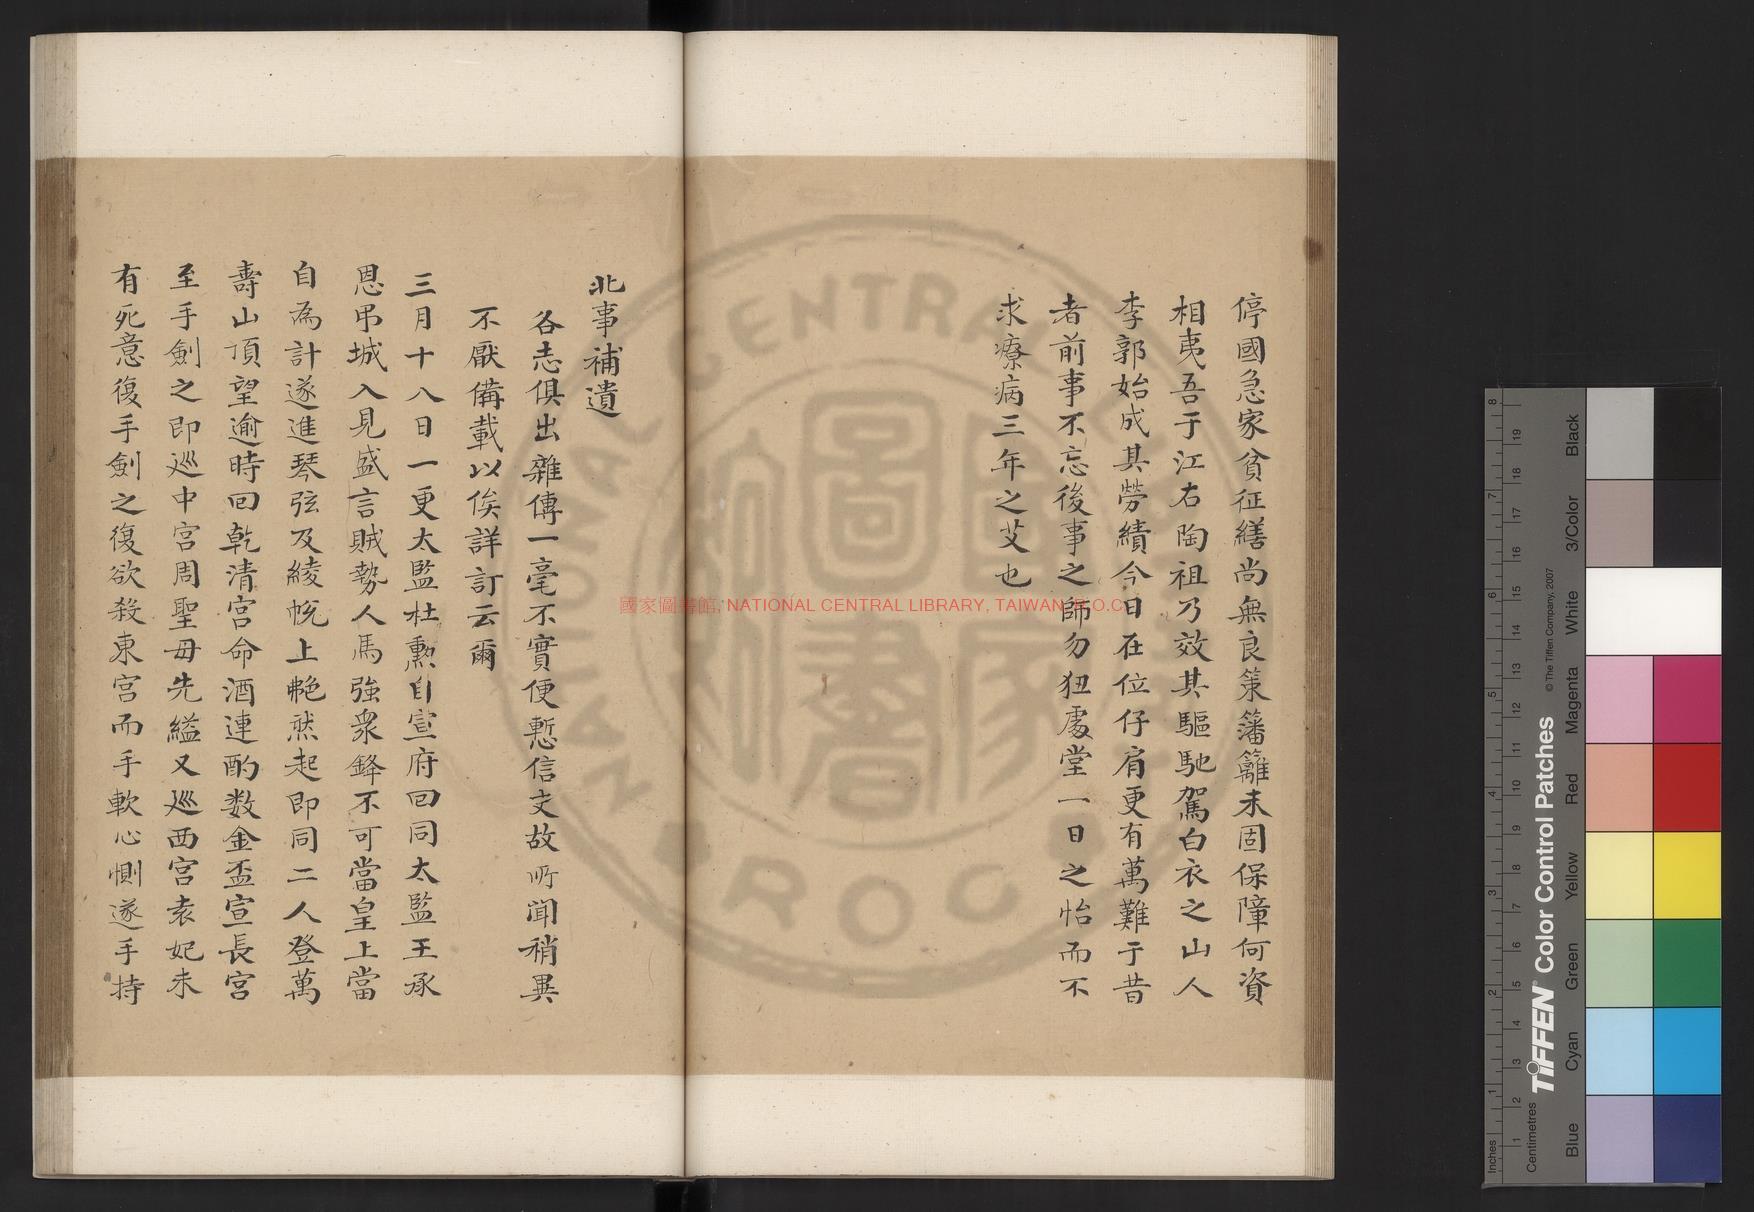 停國急家貧征繕尚無良策籓籬未固保障何資
相夷吾于江右陶祖乃效其驅馳駕白衣之山人
李郭始成其勞績今日在位仔肩更有萬難于昔
者前事不忘後事之師勿狃處堂一日之怡而不
求療病三年之艾也
北事補遺
各志俱出雜傳一毫不實便慙信文故所聞稍異
不厭備載以俟詳訂云爾
三月十八日一更太監杜勲自宣府回同太監王承
恩吊城入見盛言賊勢人馬強衆鋒不可當皇上當
自為計遂進琴弦及綾帨上艴然起即同二人登萬
壽山頂望逾時回乾清宮命酒連酌数金盃宣長宮
至手劍之即巡中宮周聖母先縊又巡西宮袁妃未
有死意復手劍之復欲殺東宮而手軟心惻遂手持
國家圖書館, NATIONAL CENTRAL LIBRARY, TAIWAN (R.O.C)
NATIONAL CENTRAL
R.O.C
國家圖書
Inches
Centimetres
TIFFEN® Color Control Patches
© The Tiffen Company, 2007
Blue
Cyan
Green
Yellow
Red
Magenta
White
3/Color
Black